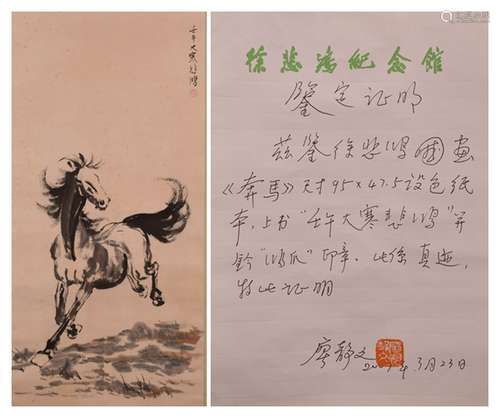 壬午大寒悲鴻
徐悲鴻紀念館
鑒定证明
兹鑒徐悲鸿国画
《奔馬》尺寸95×47.5设色纸
本，上书“壬午大寒悲鸿”并
钤“鸿爪”印章。此係真迹，
特此证明
廖静文
3月23日